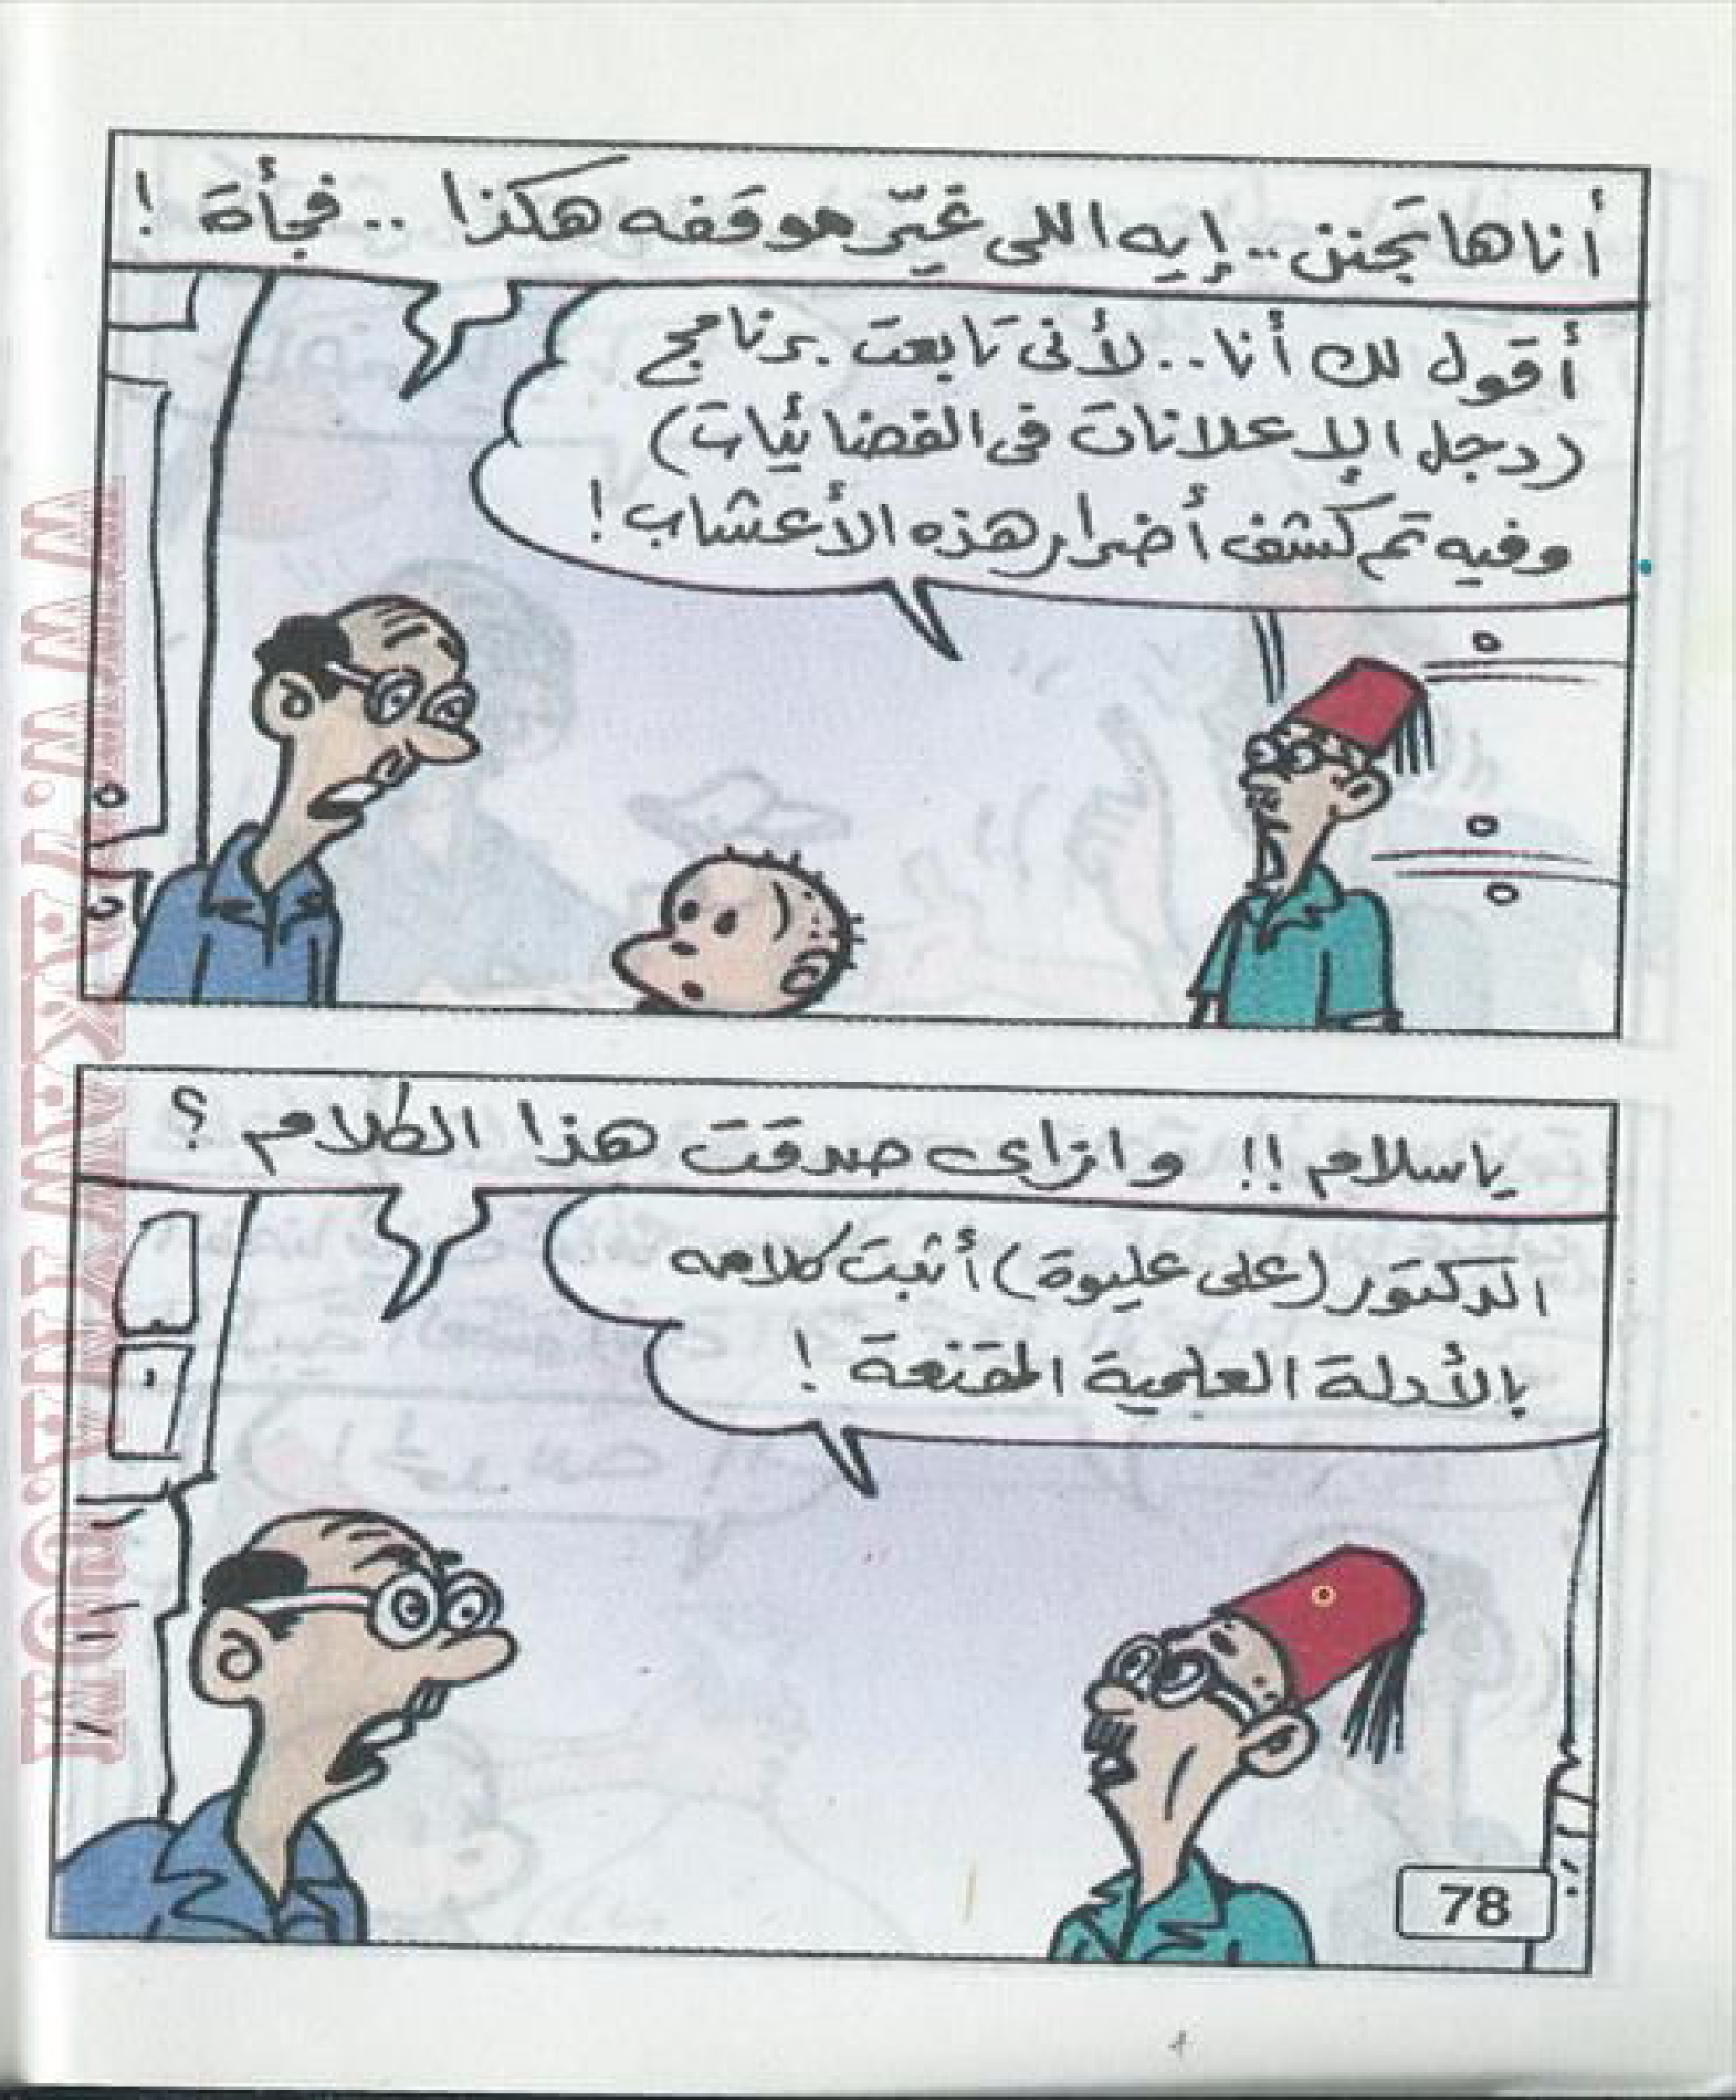 أنا هاتجنن.. إيه اللى غيّر موقفه هكذا .. فجأة !
أقول لك أنا.. لأنى تابعت برنامج
(دجل الإعلانات فى الفضائيات)
وفيه تم كشف أضرار هذه الأعشاب !
ياسلام !! وازاى صدقت هذا الكلام ؟
الدكتور (على عليوة) أثبت كلامه
بالأدلة العلمية المقنعة !
78